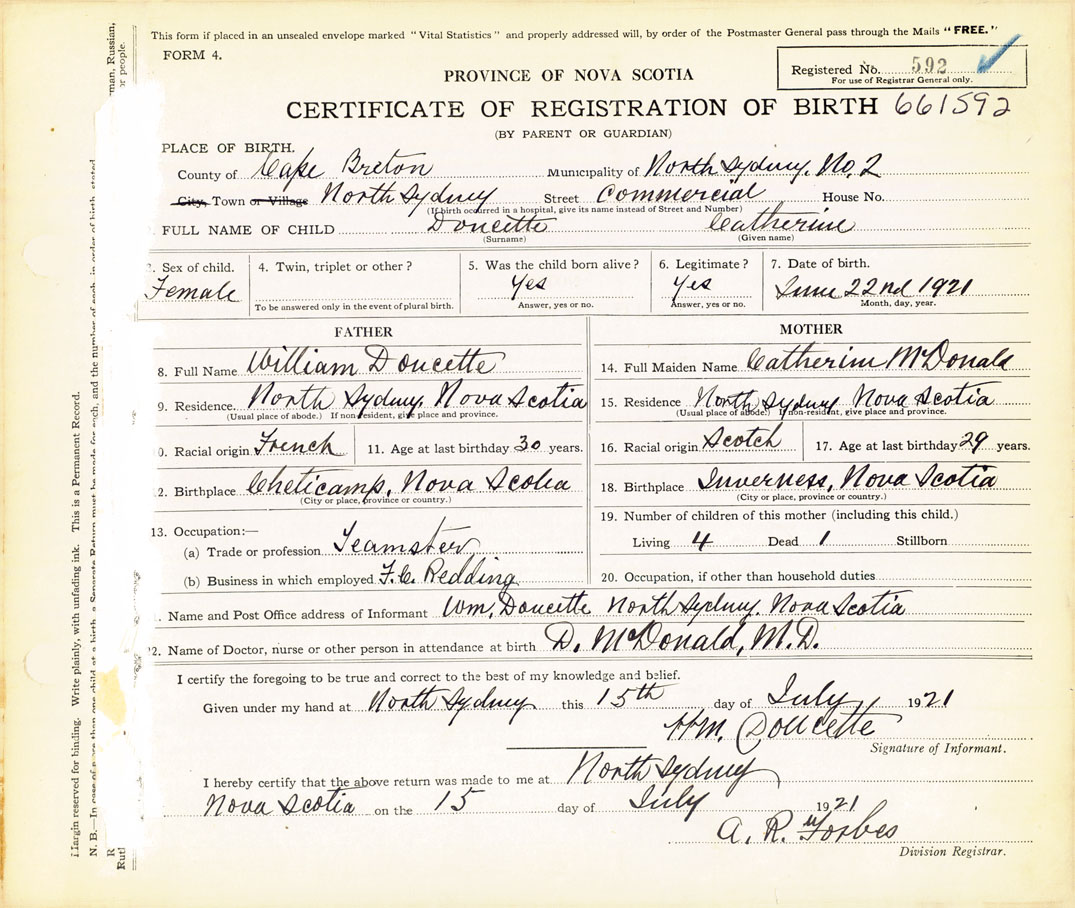 This form if placed in an unsealed envelope marked "Vital Statistics" and properly addressed will, by order of the Postmaster General pass through the Mails "FREE."
FORM 4.
Registered No. 592
For use of Registrar General only.
PROVINCE OF NOVA SCOTIA
CERTIFICATE OF REGISTRATION OF BIRTH 661592
(BY PARENT OR GUARDIAN)
PLACE OF BIRTH.
County of Cape Breton Municipality of North Sydney. No. 2
City, Town or Village North Sydney Street Commercial House No.
(If birth occurred in a hospital, give its name instead of Street and Number)
FULL NAME OF CHILD Doucette Catherine
(Surname) (Given name)
3. Sex of child. 4. Twin, triplet or other? 5. Was the child born alive? 6. Legitimate? 7. Date of birth.
Female Yes Yes June 22nd 1921
To be answered only in the event of plural birth. Answer, yes or no. Answer, yes or no. Month, day, year.
FATHER
8. Full Name William Doucette
9. Residence. North Sydney. Nova Scotia
(Usual place of abode.) If non-resident, give place and province.
0. Racial origin French 11. Age at last birthday 30 years.
2. Birthplace Cheticamp, Nova Scotia
(City or place, province or country.)
13. Occupation:—
(a) Trade or profession Teamster
(b) Business in which employed F.C. Redding
MOTHER
14. Full Maiden Name Catherine McDonald
15. Residence North Sydney Nova Scotia
(Usual place of abode.) If non-resident, give place and province.
16. Racial origin Scotch 17. Age at last birthday 29 years.
18. Birthplace Inverness, Nova Scotia
(City or place, province or country.)
19. Number of children of this mother (including this child.)
Living 4 Dead 1 Stillborn
20. Occupation, if other than household duties
1. Name and Post Office address of Informant Wm. Doucette North Sydney. Nova Scotia
22. Name of Doctor, nurse or other person in attendance at birth D. McDonald, M.D.
I certify the foregoing to be true and correct to the best of my knowledge and belief.
Given under my hand at North Sydney this 15th day of July 1921
Wm. Doucette
Signature of Informant.
I hereby certify that the above return was made to me at North Sydney
Nova Scotia on the 15 day of July 1921
A. R. Forbes
Division Registrar.
Margin reserved for binding. Write plainly, with unfading ink. This is a Permanent Record.
N. B.—In case of more than one child at a birth, a Separate Return must be made for each, and the number of each, in order of birth, stated
man, Russian,
or people.